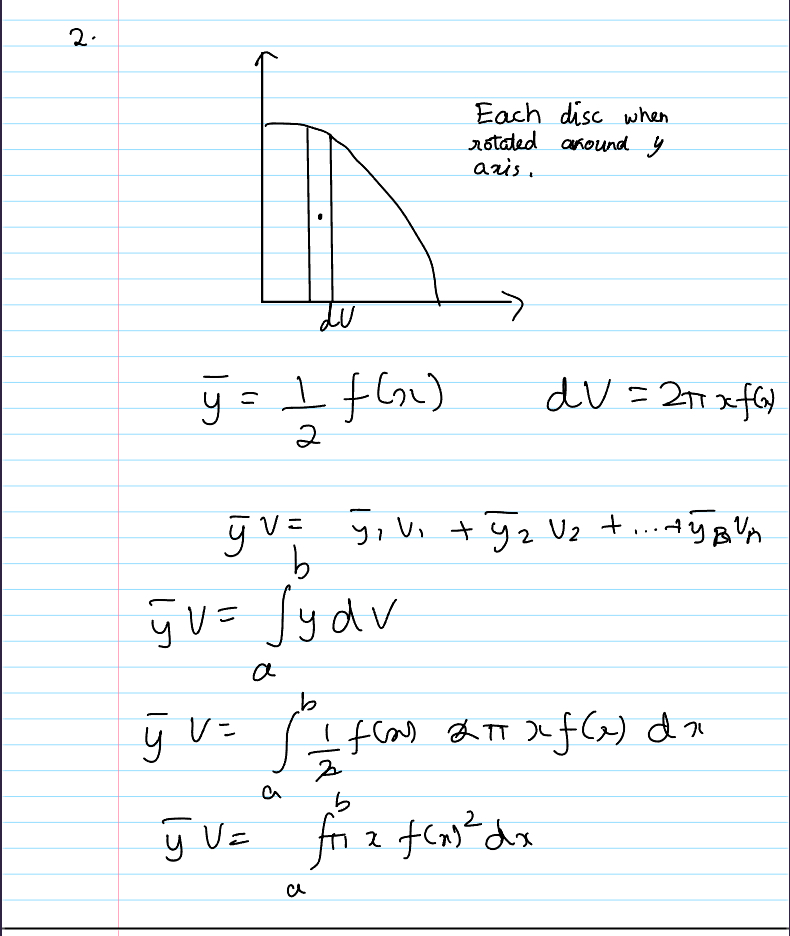 2.
Each disc when
rotated around y
axis.
dV
ȳ = 1/2 f(x)    dV = 2π x f(x)
ȳ V = ȳ₁ V₁ + ȳ₂ V₂ + ... + ȳₙ Vₙ
ȳ V = ∫ₐᵇ y dV
ȳ V = ∫ₐᵇ 1/2 f(x) 2π x f(x) dx
ȳ V = ∫ₐᵇ π x f(x)² dx